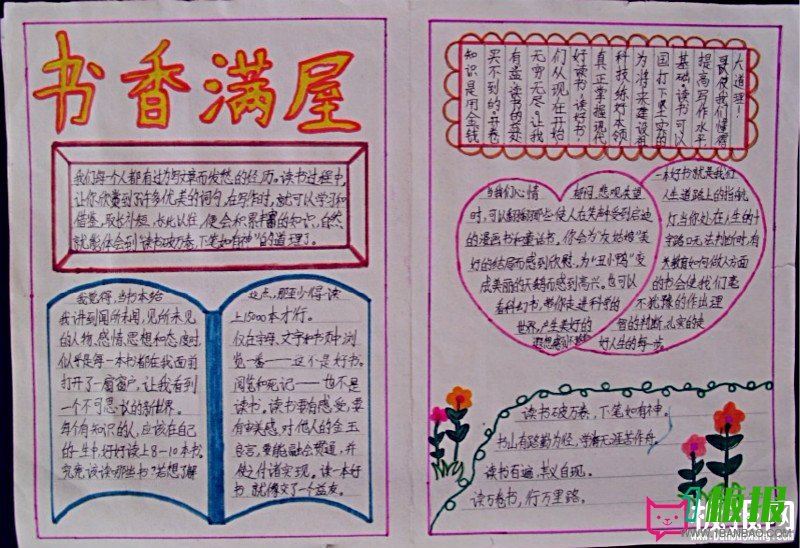 书香满屋
我们每一个人都有过为写文章而发愁的经历。读书过程中,
让你欣赏到了许多优美的词句,在写作时,就可以学习和
借鉴,取长补短,如此以往,便会积累丰富的知识,自然
就能体会到"读书破万卷,下笔如有神"的道理了。
我觉得,当书本给
我讲到闻所未闻,见所未见
的人物、感情、思想和态度时,
似乎是每一本书都在我面前
打开了一扇窗户,让我看到
一个不可思议的新世界。
每个有知识的人,应该在自己
的一生中,好好读上8-10本书。
究竟该读哪些书?若想了解
这点,那至少得读
上15000本才行。
仅在字母、文字和书页中浏
览一番——这个是好书。
阅览和死记——也不是
读书。读书要有感受,要
有审美感,对他人的金玉
良言,要能融会贯通,并
使之付诸实现。读一本好
书,就像交了一个益友。
知识是用金钱
买不到的,开卷
有益,读书的益处
无穷无尽。让我
们从现在开始
好读书,读好书,
真正掌握现代
科技,练好本领
为将来建设祖
国打下坚实的
基础。读书可以
提高写作水平
可以使我们懂得
大道理!
当我们心情
时,可以翻翻那些使人在笑料中受到启迪
的漫画书和童话书。你会为"灰姑娘"美
好的结局而感到欣慰,为"丑小鸭"变
成美丽的天鹅而感到高兴。也可以
看科幻书,带你走进科学的
世界,产生美好的
郁闷、悲观、失望
一本好书就是我们
人生道路上的指航
灯当你处在人生的十
字路口无法判断时,有
关教育如何做人方面
的书会使我们毫
不犹豫的作出理
智的判断,扎实的走
好人生的每一步。
读书破万卷,下笔如有神。
书山有路勤为径,学海无涯苦作舟。
读书百遍,其义自现。
读万卷书,行万里路。
板报
WWW.1BANBAO.COM